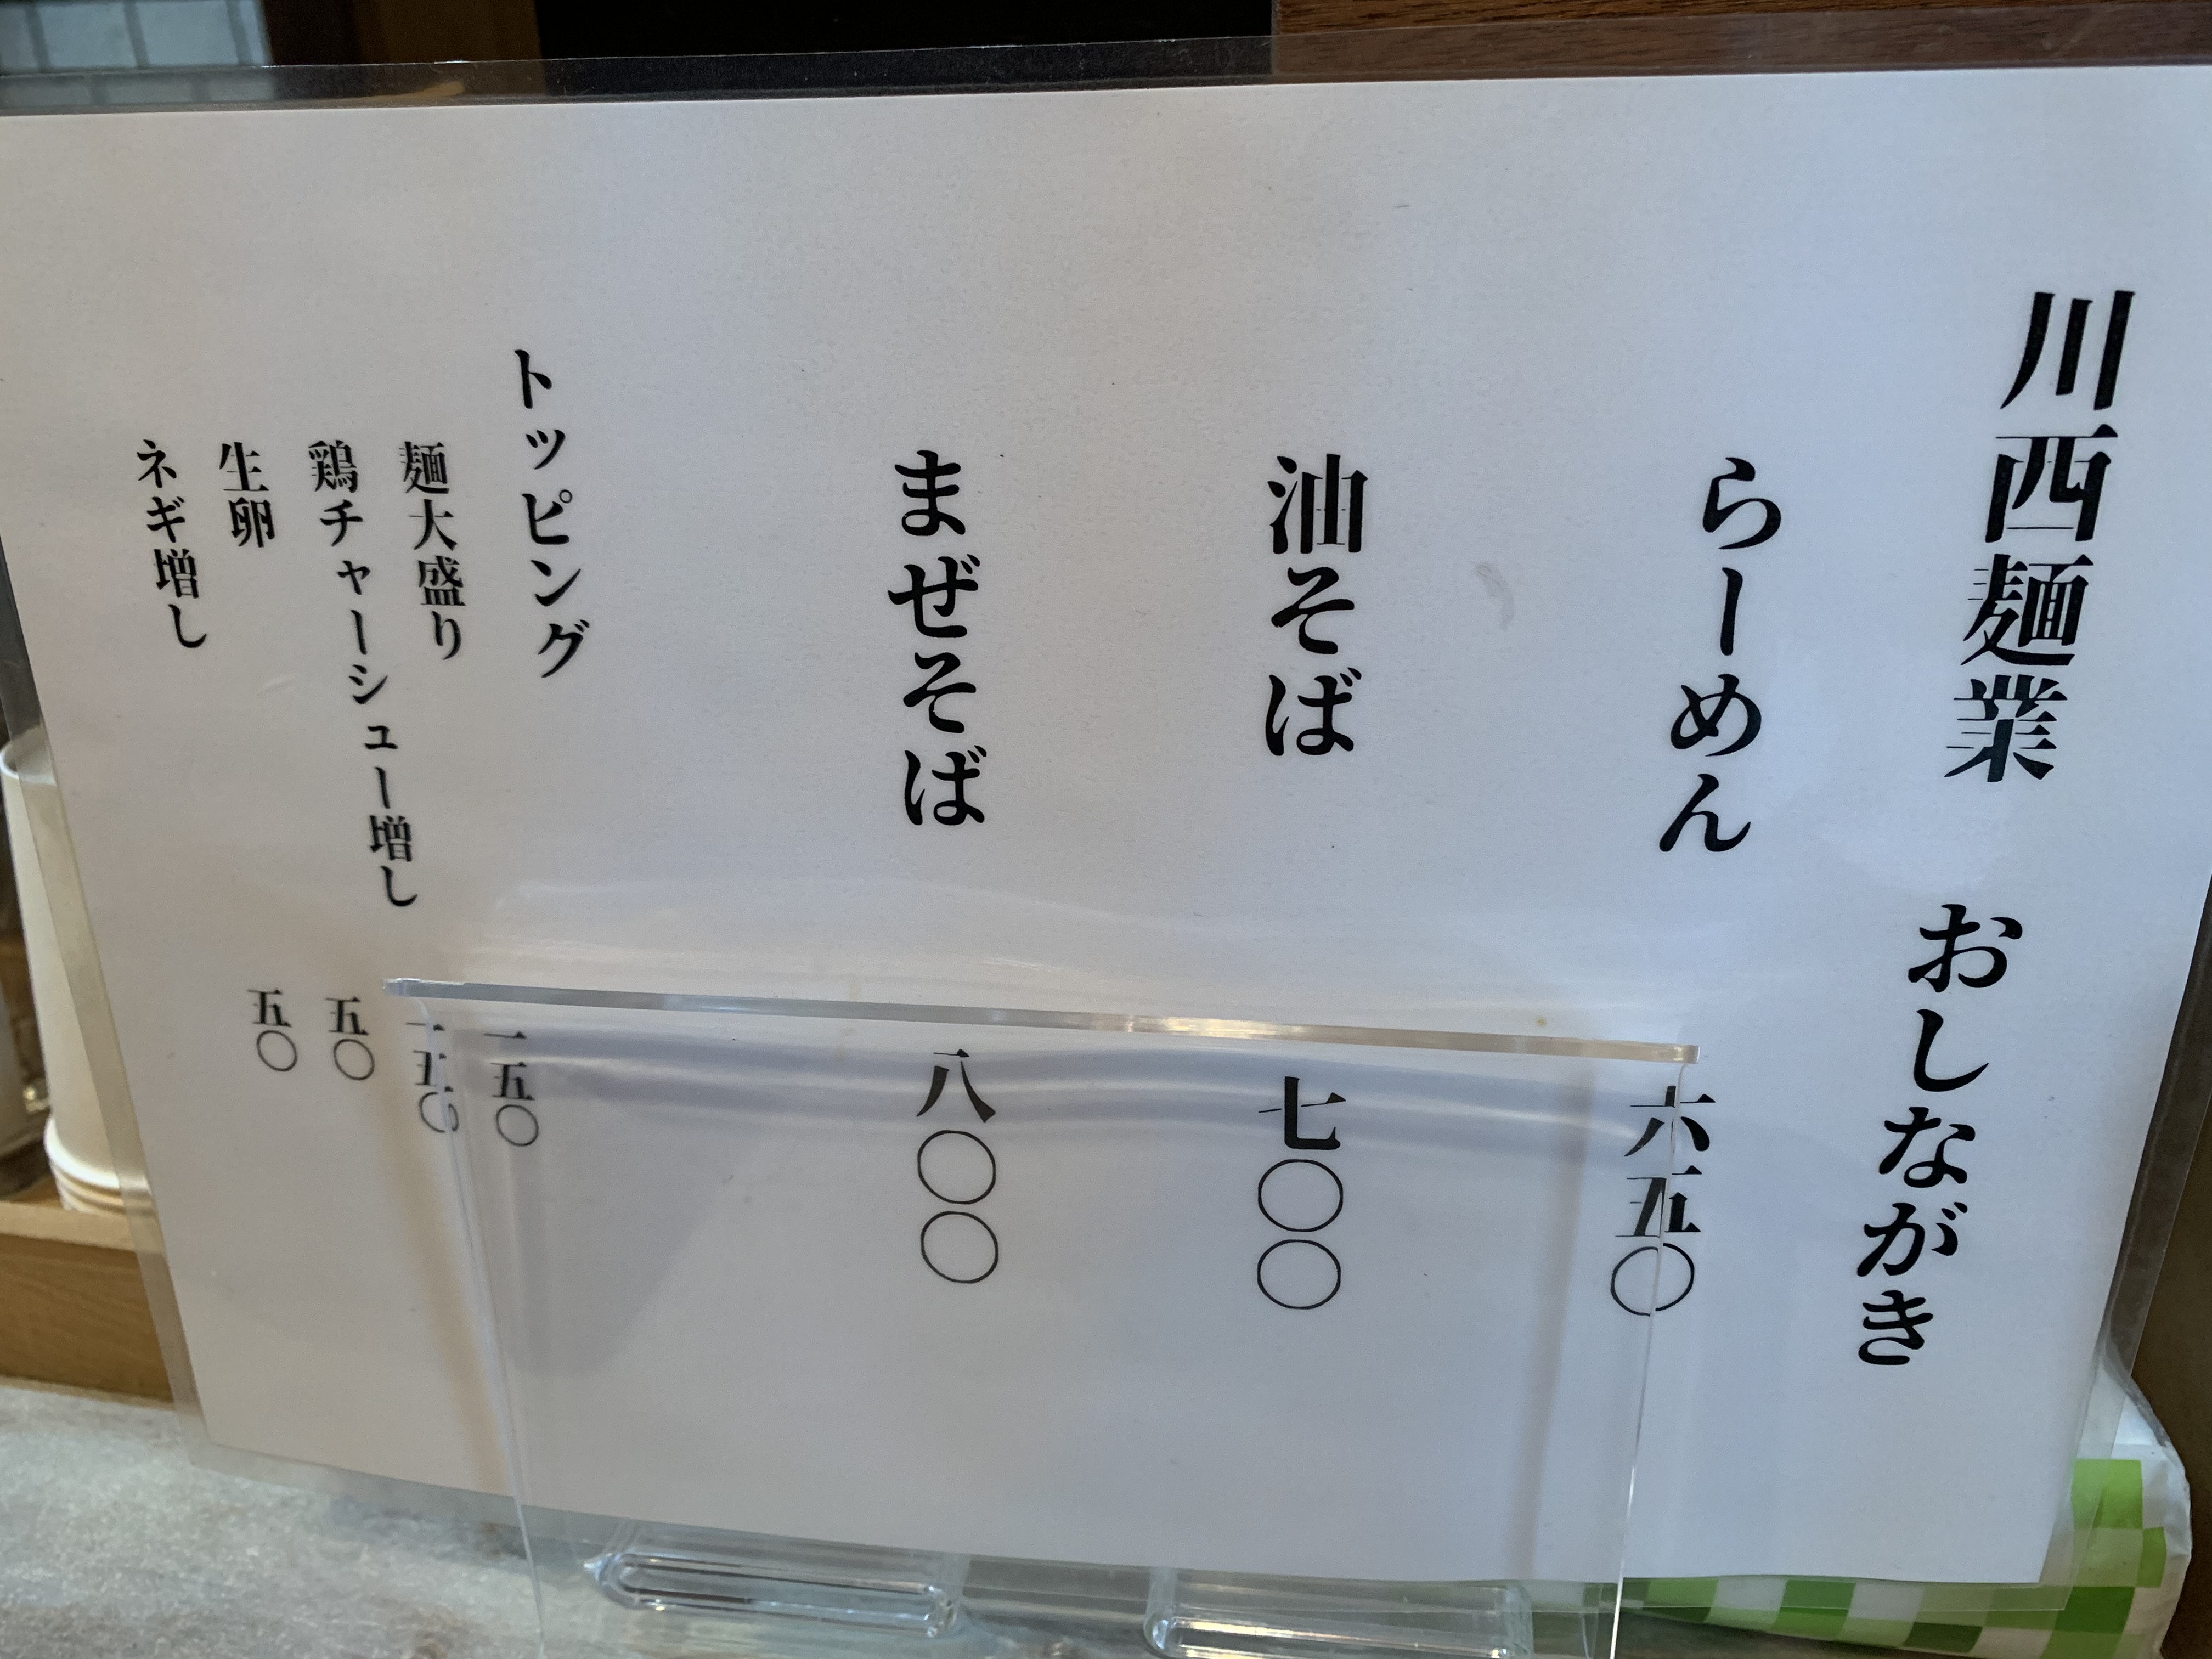 川西麺業　おしながき
らーめん　六五〇
油そば　七〇〇
まぜそば　八〇〇
トッピング
麺大盛り　一五〇
鶏チャーシュー増し　一五〇
生卵　五〇
ネギ増し　五〇